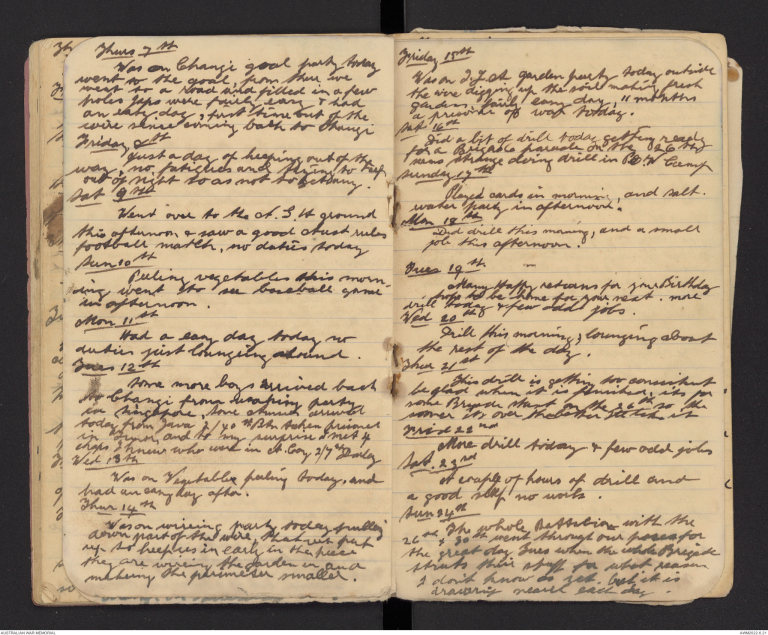 Thurs 7th
Was on Changi goal party today
went to the goal, from there we
went to a road and filled in a few
holes Japs were fairly easy & had
an easy day, first time out of the
wire since coming back to Changi
Friday 8th
Just a day of keeping out of the
way, no fatigues and trying to keep
out of sight so as not to get any.
Sat 9th
Went over to the A.G.H ground
this afternoon & saw a good Aust rules
football match, no duties today
Sun 10th
Peeling vegetables this morn-
ing went to see baseball game
in afternoon.
Mon 11st
Had a easy day today no
duties just lounging around.
Tues 12th
Some more boys arrived back
to Changi from working party
in Singapore, some arrived
today from Java & 2/40th Btn taken prisoner
in Timor, and to my surprise I met 4
chaps I knew who were in A. Coy 2/7
Wed 13th
Was on Vegetable peeling today, and
had an easy day after.
Thur 14th
Was on wireing party today pulling
down part of the wire, that we put
up to keep us in early in the piece
they are wireing the garden in and
making the perimeter smaller.
Friday 15th
Was on A.I.F. garden party today outside
the wire digging up the soil making fresh
gardens, fairly easy day, 11 months
a prisoner of war today.
Sat 16th
Did a bit of drill today getting ready
for a Brigade parade on the 26th
seems strange doing drill in P.O.W Camp
Sunday 17th
Played cards in morning, and salt
water party in afternoon.
Mon 18th
Did drill this morning, and a small
job this afternoon.
Tues 19th
Many Happy returns for your Birthday
hope to be home for your next. more
drill today & few odd jobs.
Wed 20th
Drill this morning, lounging about
the rest of the day.
Thur 21st
This drill is getting too consistent
be glad when it is finished, its for
some Brigade on the 26th so the
sooner its over the better I'll like it
Frid 22nd
More drill today & few odd jobs
Sat. 23rd
A couple of hours of drill and
a good sleep no work.
Sun 24th
The whole Battalion with the
26th & 30th went through our paces for
the great day Tues when the whole Brigade
struts their stuff for what reason
I don't know as yet. but it is
drawing nearer each day.
AUSTRALIAN WAR MEMORIAL
AWM2022.6.21